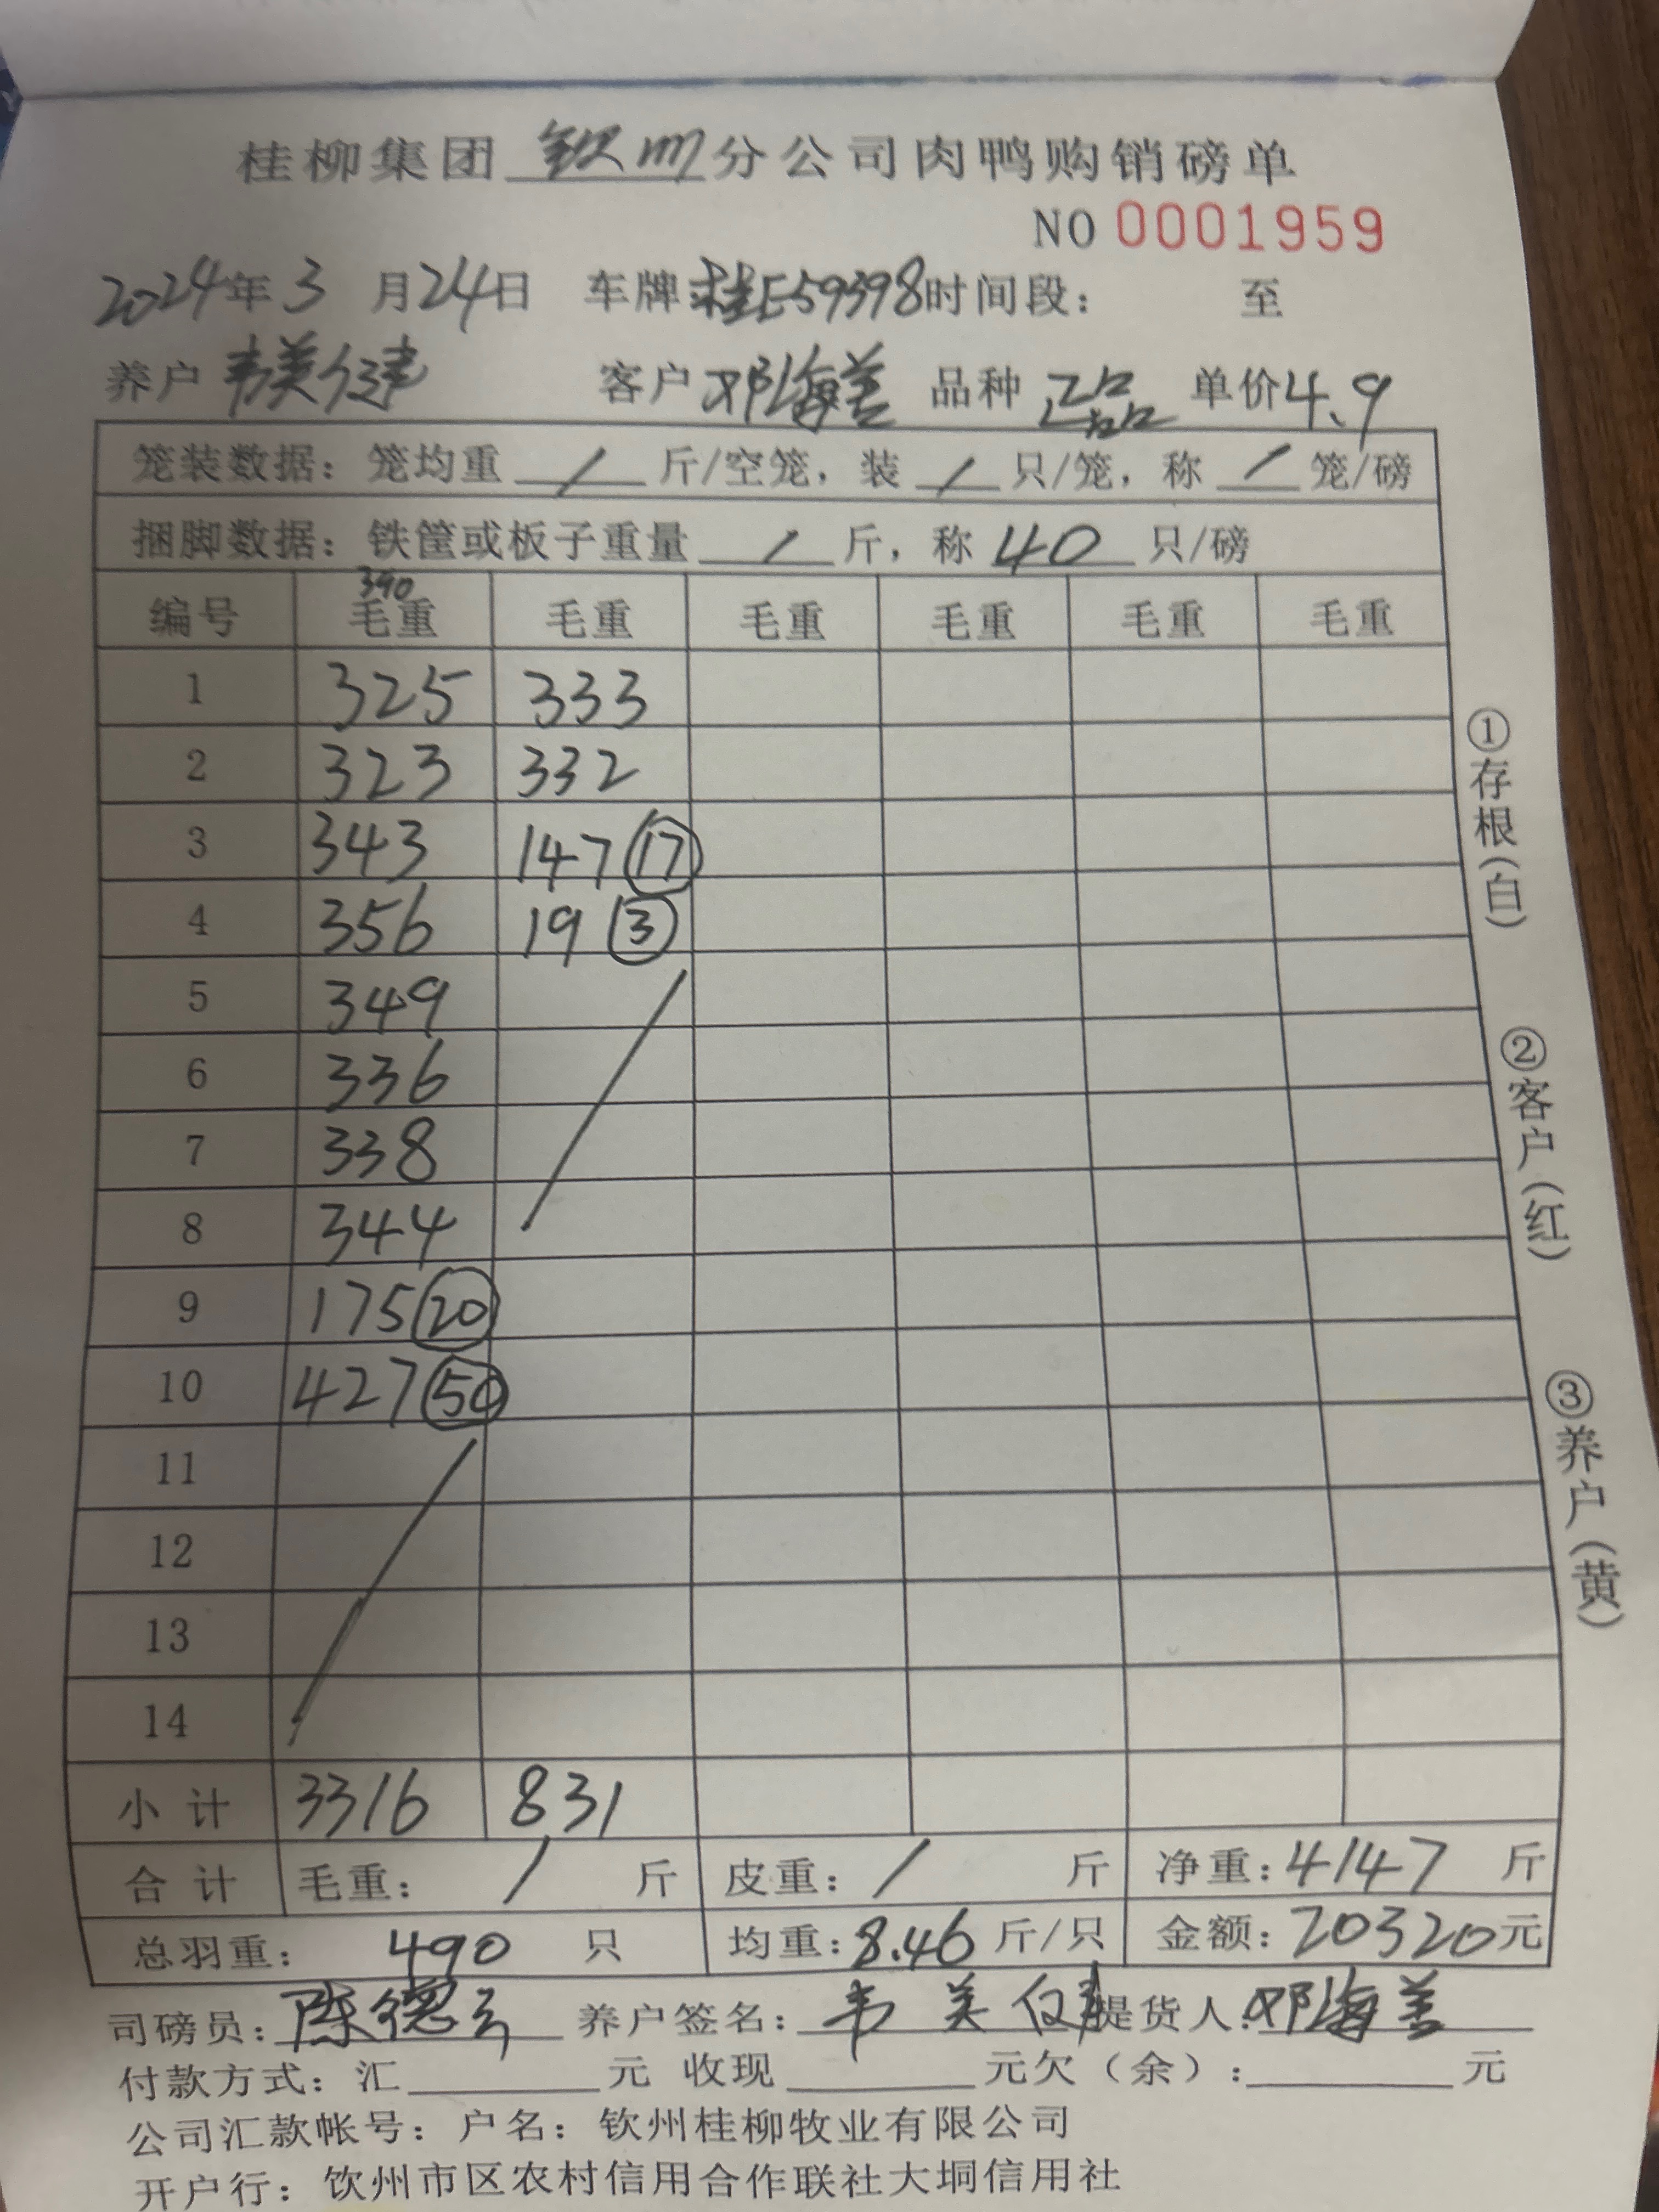 桂柳集团 钦州 分公司肉鸭购销磅单
NO 0001959
2024年3月24日 车牌 桂E59398 时间段： 至
养户 韦美健 客户 邓海美 品种 正品 单价4.9
笼装数据：笼均重 / 斤/空笼，装 / 只/笼，称 / 笼/磅
捆脚数据：铁筐或板子重量 / 斤，称 40 只/磅
390
编号 毛重 毛重 毛重 毛重 毛重 毛重
1 325 333
2 323 332
3 343 147 17
4 356 19 3
5 349
6 336
7 338
8 344
9 175 20
10 427 50
11
12
13
14
小计 3316 831
合计 毛重： / 斤 皮重： / 斤 净重：4147 斤
总羽重： 490 只 均重：8.46 斤/只 金额：20320元
司磅员：陈德云 养户签名：韦美健 提货人：邓海美
付款方式：汇 元 收现 元欠（余）： 元
公司汇款帐号：户名：钦州桂柳牧业有限公司
开户行：钦州市区农村信用合作联社大垌信用社
①存根（白）
②客户（红）
③养户（黄）